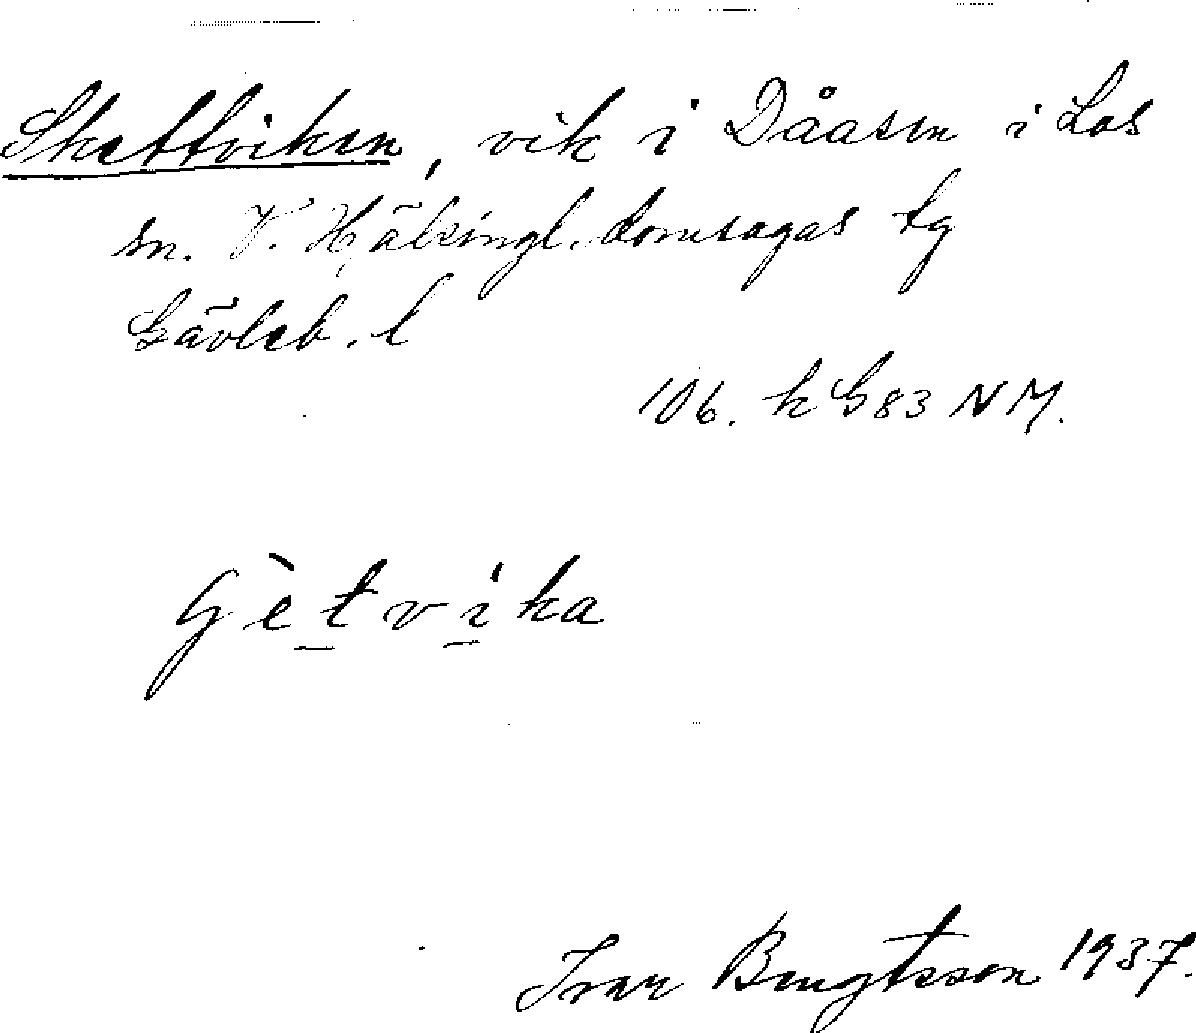 Skettviken, vik i Dåasen i Los
sn. V. Hälsingl. domsagas tg
Gävleb. l
106. k G 83 NM.
Gètvika
Ivar Bengtsson 1937.